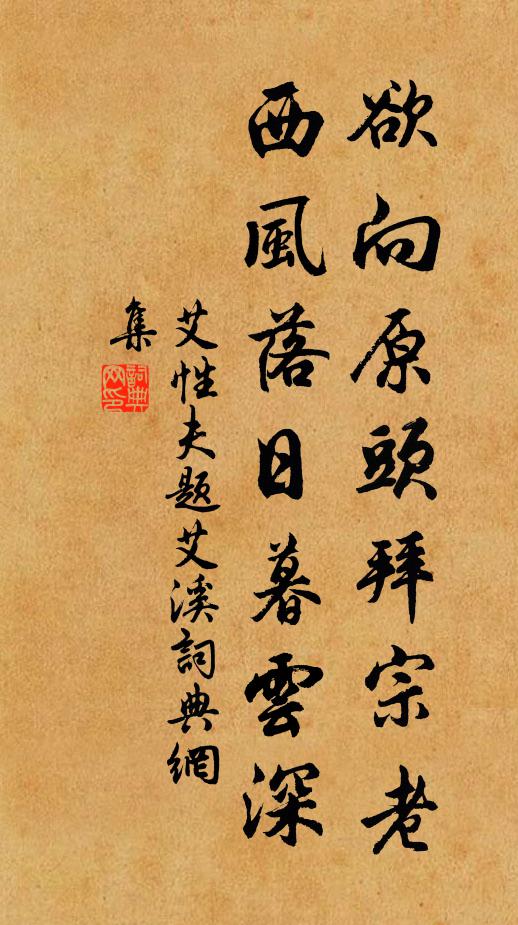 欲向原頭拜宗老
西風落日暮雲深
艾性夫題艾溪詞典網
集
詞典网印